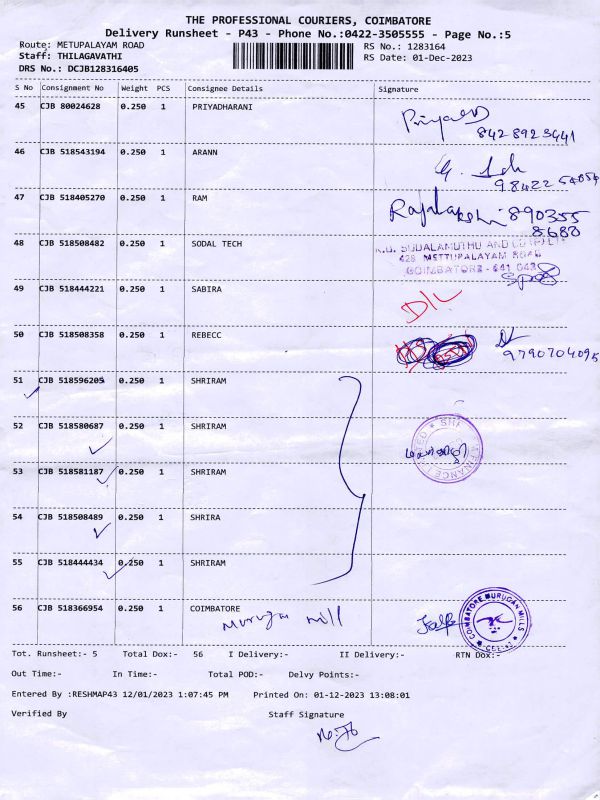 THE PROFESSIONAL COURIERS, COIMBATORE
Delivery Runsheet - P43 - Phone No.:0422-3505555 - Page No.:5
Route: METUPALAYAM ROAD
RS No.: 1283164
Staff: THILAGAVATHI
RS Date: 01-Dec-2023
DRS No.: DCJB128316405
S No Consignment No Weight PCS Consignee Details Signature
45 CJB 80024628 0.250 1 PRIYADHARANI
8428923441
46 CJB 518543194 0.250 1 ARANN
47 CJB 518405270 0.250 1 RAM
890355
8680
48 CJB 518508482 0.250 1 SODAL TECH
428 METTUPALAYAM ROAD
COIMBATORE - 641 043
49 CJB 518444221 0.250 1 SABIRA
D/L
50 CJB 518508358 0.250 1 REBECC
9790704095
51 CJB 518596205 0.250 1 SHRIRAM
52 CJB 518580687 0.250 1 SHRIRAM
53 CJB 518581187 0.250 1 SHRIRAM
54 CJB 518508489 0.250 1 SHRIRA
55 CJB 518444434 0.250 1 SHRIRAM
56 CJB 518366954 0.250 1 COIMBATORE
Murugan mill
COIMBATORE MURUGAN MILLS
Tot. Runsheet:- 5 Total Dox:- 56 I Delivery:- II Delivery:- RTN Dox:-
Out Time:- In Time:- Total POD:- Delvy Points:-
Entered By :RESHMAP43 12/01/2023 1:07:45 PM Printed On: 01-12-2023 13:08:01
Verified By Staff Signature